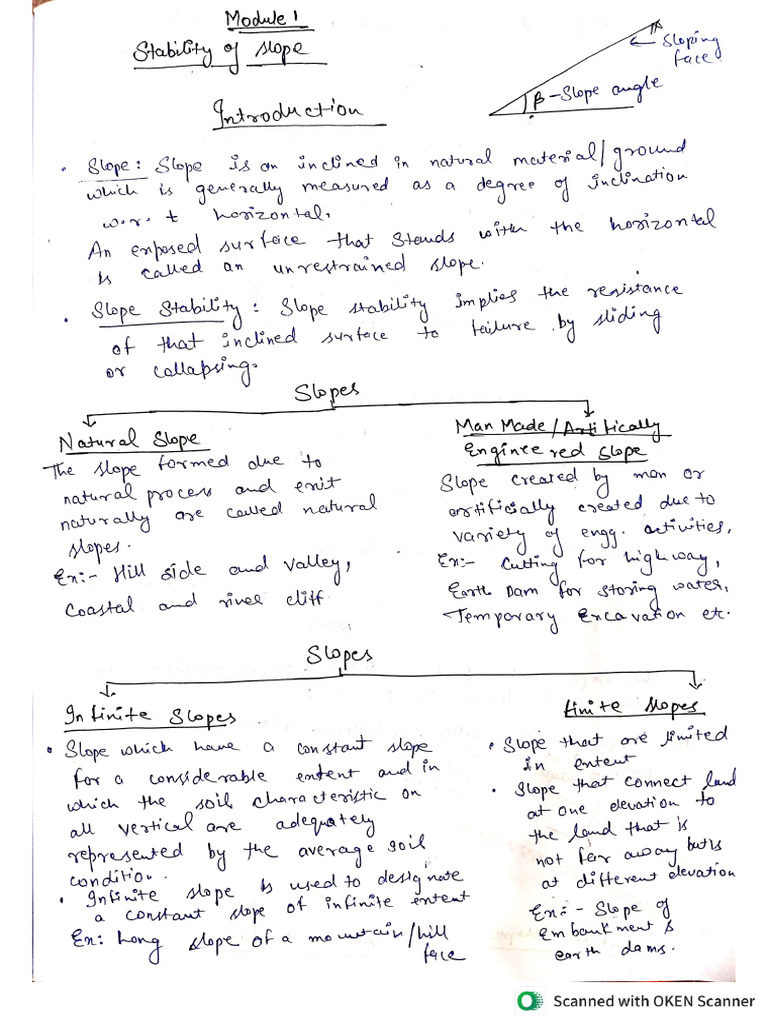 Module 1
Stability of slope
Sloping
face.
β - Slope angle
Introduction
• Slope: Slope is an inclined in natural material/ground
which is generally measured as a degree of inclination
w.r.t horizontal.
An exposed surface that stands with the horizontal
is called an unrestrained slope.
• Slope Stability: Slope stability implies the resistance
of that inclined surface to failure by sliding
or collapsing.
Slopes
Natural Slope
The slope formed due to
natural process and exit
naturally are called natural
slopes.
Ex:- Hill side and valley,
coastal and river cliff
Man Made/Artifically
Engineered slope
Slope created by man or
artificially created due to
variety of engg. activities.
Ex:- Cutting for highway,
Earth Dam for storing water,
Temporary Excavation etc.
Slopes
Infinite Slopes
• Slope which have a constant slope
for a considerable extent and in
which the soil characteristic on
all vertical are adequately
represented by the average soil
condition.
• Infinite slope is used to designate
a constant slope of infinite extent
Ex: Long slope of a mountain/hill
face
finite slopes
• Slope that are limited
in extent
• Slope that connect land
at one elevation to
the land that is
not far away but is
at different elevation
Ex:- Slope of
embankment &
earth dams.
Scanned with OKEN Scanner